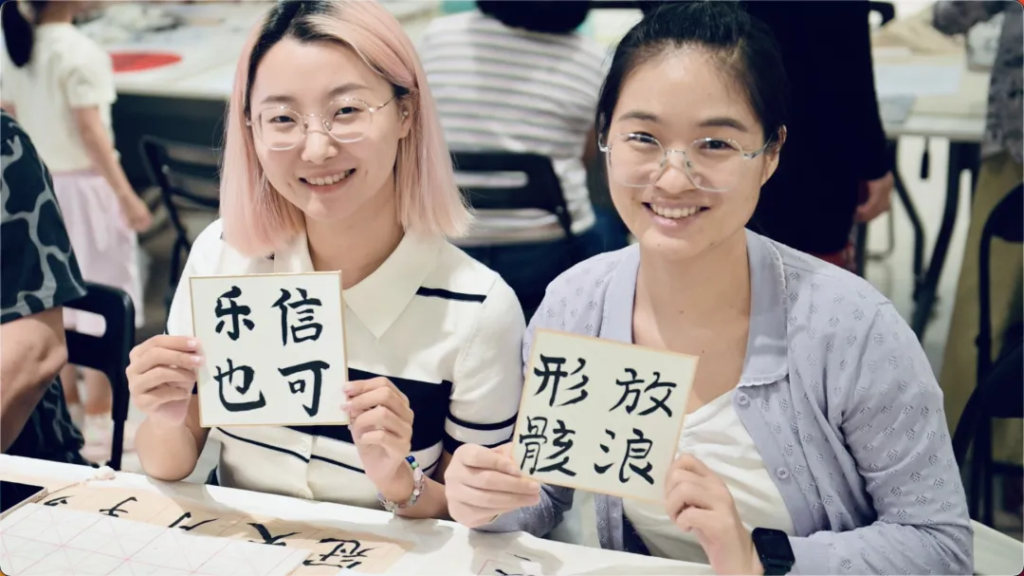 信可
乐也
放浪
形骸